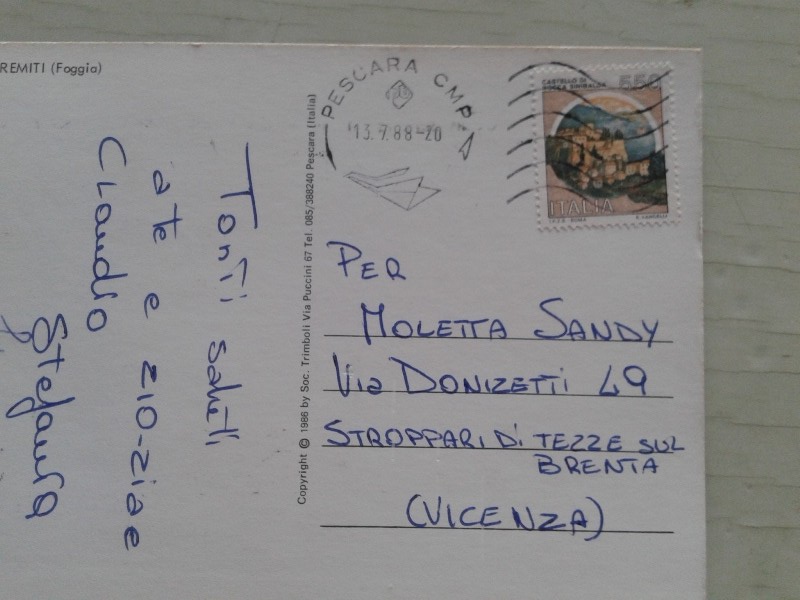 REMITI (Foggia)
Tanti saluti
a te e zio-zia e
Claudio
Stefania
Copyright © 1986 by Soc. Trimboli Via Puccini 67 Tel. 085/388240 Pescara (Italia)
PESCARA CMP
13.7.88-20
CASTELLO DI
ROCCA SINIBALDA
550
ITALIA
PER
MOLETTA SANDY
Via DONIZETTI 49
STROPPARI DI TEZZE SUL
BRENTA
(VICENZA)